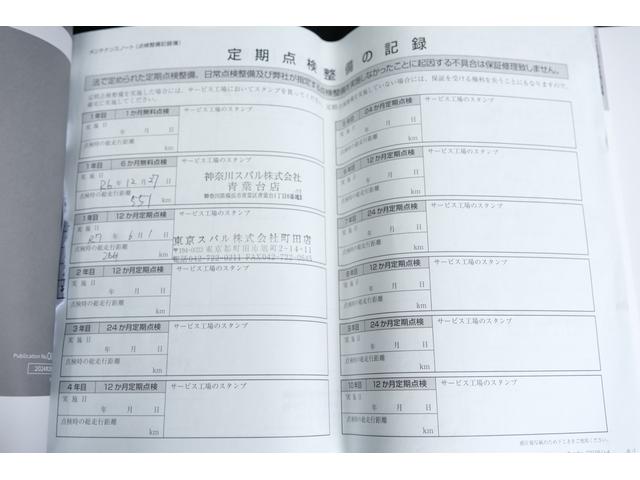 メンテナンスノート(点検整備記録簿)
定期点検整備の記録
法で定められた定期点検整備、日常点検整備及び弊社が指定する点検整備を実施しなかったことに起因する不具合は保証修理致しません。
定期点検整備を実施した場合には、サービス工場においてスタンプを貰ってください。
1年目 1か月無料点検 サービス工場のスタンプ
実施日
年 月 日
点検時の総走行距離
km
1年目 6か月無料点検 サービス工場のスタンプ
実施日
R6年12月27日
点検時の総走行距離
551 km
神奈川スバル株式会社
青葉台店
1年目 12か月定期点検
実施日
R7年6月1日
点検時の総走行距離
km
東京スバル株式会社町田店
東京都町田市旭町2-14-11
電話042-722-0211
2年目 12か月定期点検 サービス工場のスタンプ
実施日
年 月 日
点検時の総走行距離
km
3年目 24か月定期点検 サービス工場のスタンプ
実施日
年 月 日
点検時の総走行距離
km
4年目 12か月定期点検 サービス工場のスタンプ
実施日
年 月 日
点検時の総走行距離
km
24か月定期点検 サービス工場のスタンプ
年 月 日
km
12か月定期点検 サービス工場のスタンプ
年 月 日
km
24か月定期点検 サービス工場のスタンプ
年 月 日
km
12か月定期点検 サービス工場のスタンプ
年 月 日
点検時の総走行距離
km
24か月定期点検 サービス工場のスタンプ
実施日
年 月 日
点検時の総走行距離
km
10年目 12か月定期点検 サービス工場のスタンプ
実施日
年 月 日
点検時の総走行距離
km
Publication No.